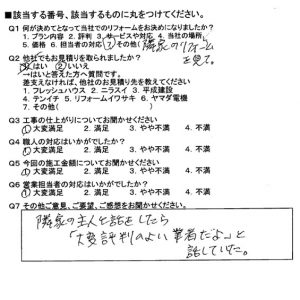 ■該当する番号、該当するものに丸をつけてください。
Q1 何が決めてとなって当社でのリフォームをお決めになりましたか?
1. プラン内容 2. 評判 3. サービスや対応 4. 当社の場所
5. 価格 6. 担当者の対応 ⑦その他(隣家のリフォームを見て。
Q2 他社でもお見積りを取られましたか?
①はい ②いいえ
→はいと答えた方へ質問です。
差支えなければ、他社のお見積り先を教えてください
1. フレッシュハウス 2. ニラスイ 3. 平成建設
4. テンイチ 5. リフォームイワサキ 6. ヤマダ電機
7. その他
Q3 工事の仕上がりについてお聞かせください
①大変満足 2. 満足 3. やや不満 4. 不満
Q4 職人の対応はいかがでしたか?
①大変満足 2. 満足 3. やや不満 4. 不満
Q5 今回の施工金額についてお聞かせください
①大変満足 2. 満足 3. やや不満 4. 不満
Q6 営業担当者の対応はいかがでしたか?
①大変満足 2. 満足 3. やや不満 4. 不満
Q7 その他ご意見、ご要望、ご感想をお聞かせください。
隣家の主人と話をしたら
「大変評判のよい業者だよ」と
話していた。